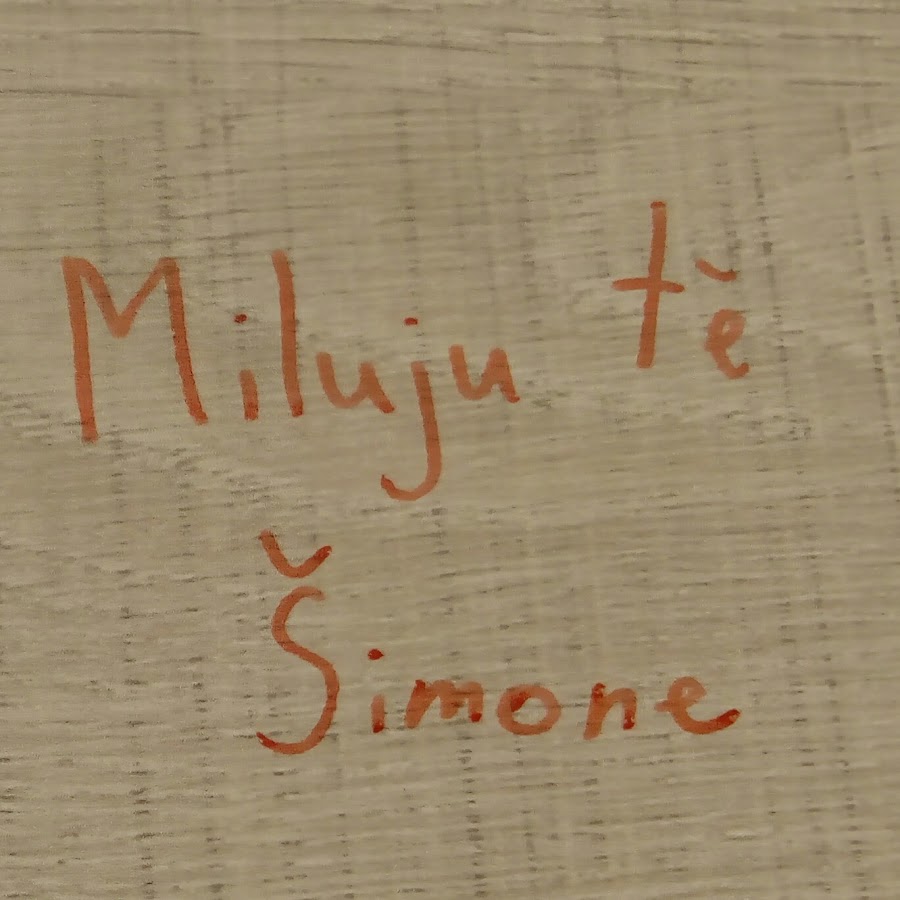 Miluju tě
Šimone